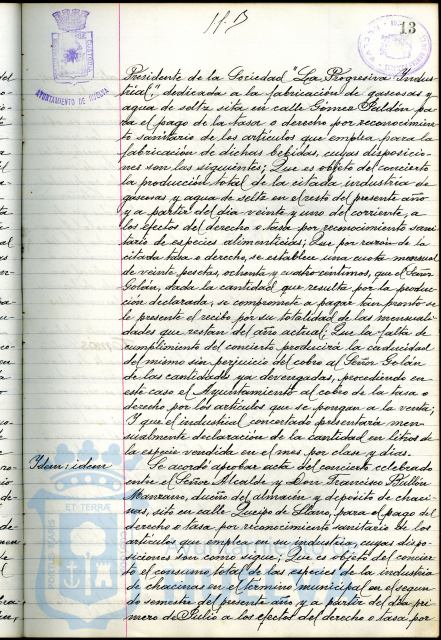 13
AYUNTAMIENTO DE HUELVA
Presidente de la Sociedad "La Progresiva Indus-
trial", dedicada a la fabricación de gaseosas y
agua de seltz sita en calle Gómez Puldón pa-
ra el pago de la tasa o derecho por reconocimien-
to sanitario de los artículos que emplea para la
fabricación de dichas bebidas, cuyas disposicio-
nes son las siguientes; Que es objeto del concierto
la producción total de la citada industria de
gaseosas y agua de seltz en el resto del presente año
y a partir del día veinte y uno del corriente, a
los efectos del derecho o tasa por reconocimiento sani-
tario de especies alimenticias; Que por razón de la
citada tasa o derecho, se establece una cuota mensual
de veinte pesetas, ochenta y cuatro céntimos, que el Señor
Golán, dada la cantidad que resulta por la produc-
ción declarada, se compromete a pagar tan pronto se
le presente el recibo por su totalidad de las mensuali-
dades que restan del año actual; Que la falta de
cumplimiento del concierto producirá la caducidad
del mismo sin perjuicio del cobro al Señor Golán
de las cantidades ya devengadas, procediendo en
este caso el Ayuntamiento al cobro de la tasa o
derecho por los artículos que se pongan a la venta;
Y que el industrial concertado presentará men-
sualmente declaración de la cantidad en litros de
la especie vendida en el mes por clase y días.
Idem: idem
Se acordó aprobar acta del concierto celebrado
entre el Señor Alcalde y Don Francisco Pullón
Manzano, dueño del almacén y depósito de chaci-
nas, sito en calle Queipo de Llano, para el pago del
derecho o tasa por reconocimiento sanitario de los
artículos que emplea en su industria, cuyas dispo-
siciones son como sigue; Que es objeto del concier-
to el consumo total de las especies de la industria
de chacinas en el término municipal en el segun-
do semestre del presente año y a partir del día pri-
mero de Julio a los efectos del derecho o tasa por